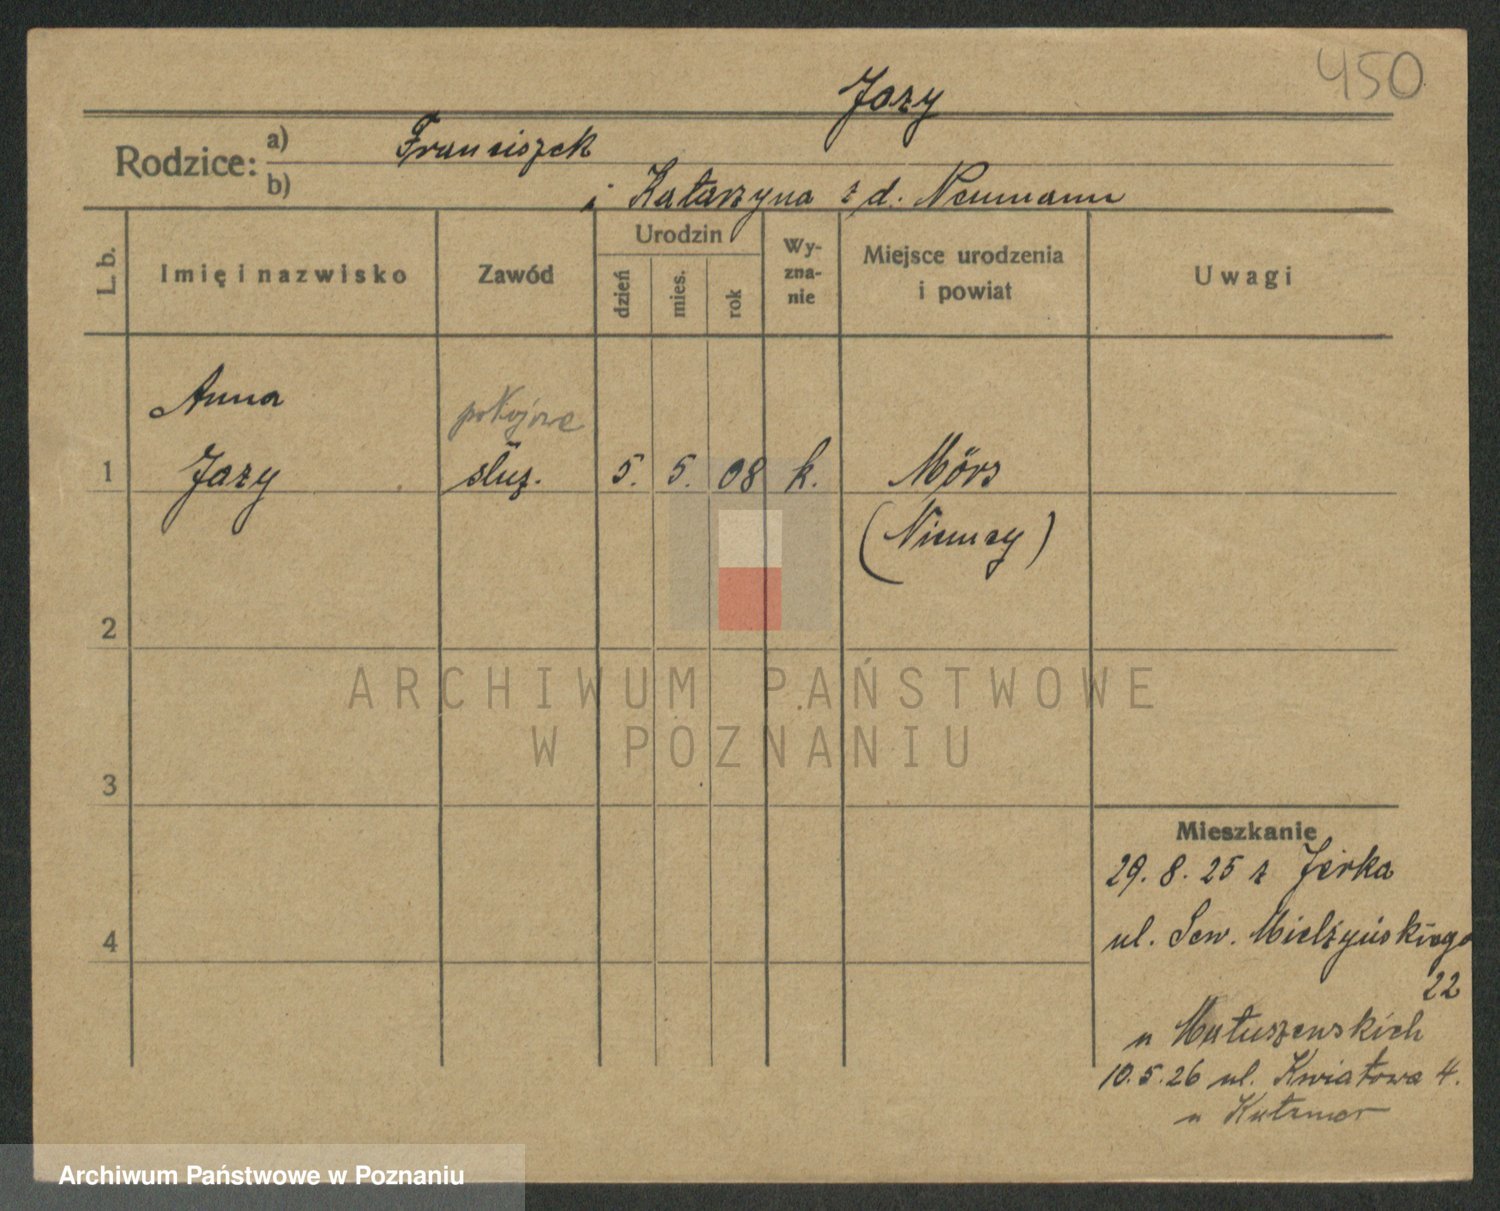 450
Jazy
Rodzice: a) Franciszek
b) i Katarzyna z d. Neumann
L. b.
Imię i nazwisko
Zawód
Urodzin
dzień
mies.
rok
Wy-
zna-
nie
Miejsce urodzenia
i powiat
Uwagi
Anna
pokojowa
1 Jazy służ. 5. 5. 08 k. Mörs
(Niemcy)
2
ARCHIWUM PAŃSTWOWE
W POZNANIU
3
Mieszkanie
29. 8. 25 z Jerka
ul. Sew. Mielżyńskiego
22
4
u Matuszewskich
10. 5. 26 ul. Kwiatowa 4.
u
Archiwum Państwowe w Poznaniu